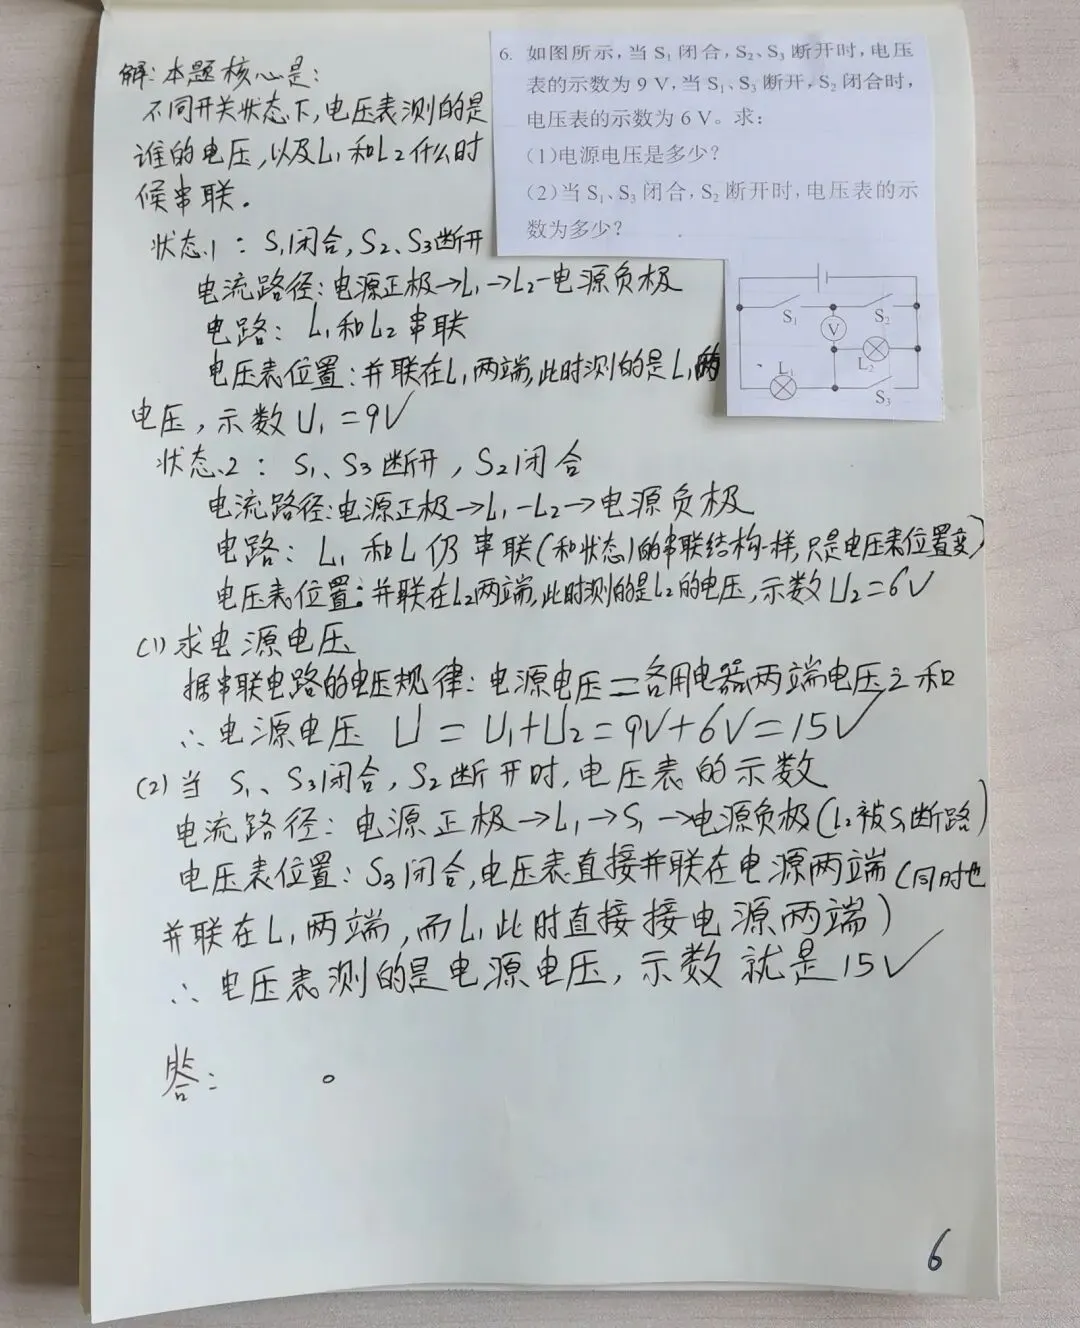 解:本题核心是:
不同开关状态下,电压表测的是
谁的电压,以及L₁和L₂什么时
候串联。
6. 如图所示,当S₁闭合,S₂、S₃断开时,电压
表的示数为9 V,当S₁、S₃断开,S₂闭合时,
电压表的示数为6 V。求:
(1)电源电压是多少?
(2)当S₁、S₃闭合,S₂断开时,电压表的示
数为多少?
S₁
S₂
V
L₂
L₁
S₃
状态1:S₁闭合,S₂、S₃断开
电流路径:电源正极→L₁→L₂-电源负极
电路:L₁和L₂串联
电压表位置:并联在L₁两端,此时测的是L₁的
电压,示数U₁=9V
状态2:S₁、S₃断开,S₂闭合
电流路径:电源正极→L₁-L₂→电源负极
电路:L₁和L仍串联(和状态1的串联结构一样,只是电压表位置变)
电压表位置:并联在L₂两端,此时测的是L₂的电压,示数U₂=6V
(1)求电源电压
据串联电路的电压规律:电源电压=各用电器两端电压之和
∴电源电压 U=U₁+U₂=9V+6V=15V
(2)当S₁、S₃闭合,S₂断开时,电压表的示数
电流路径:电源正极→L₁→S₁→电源负极(L₂被S₁断路)
电压表位置:S₃闭合,电压表直接并联在电源两端(同时也
并联在L₁两端,而L₁此时直接接电源两端)
∴电压表测的是电源电压,示数就是15V
答: 。
6